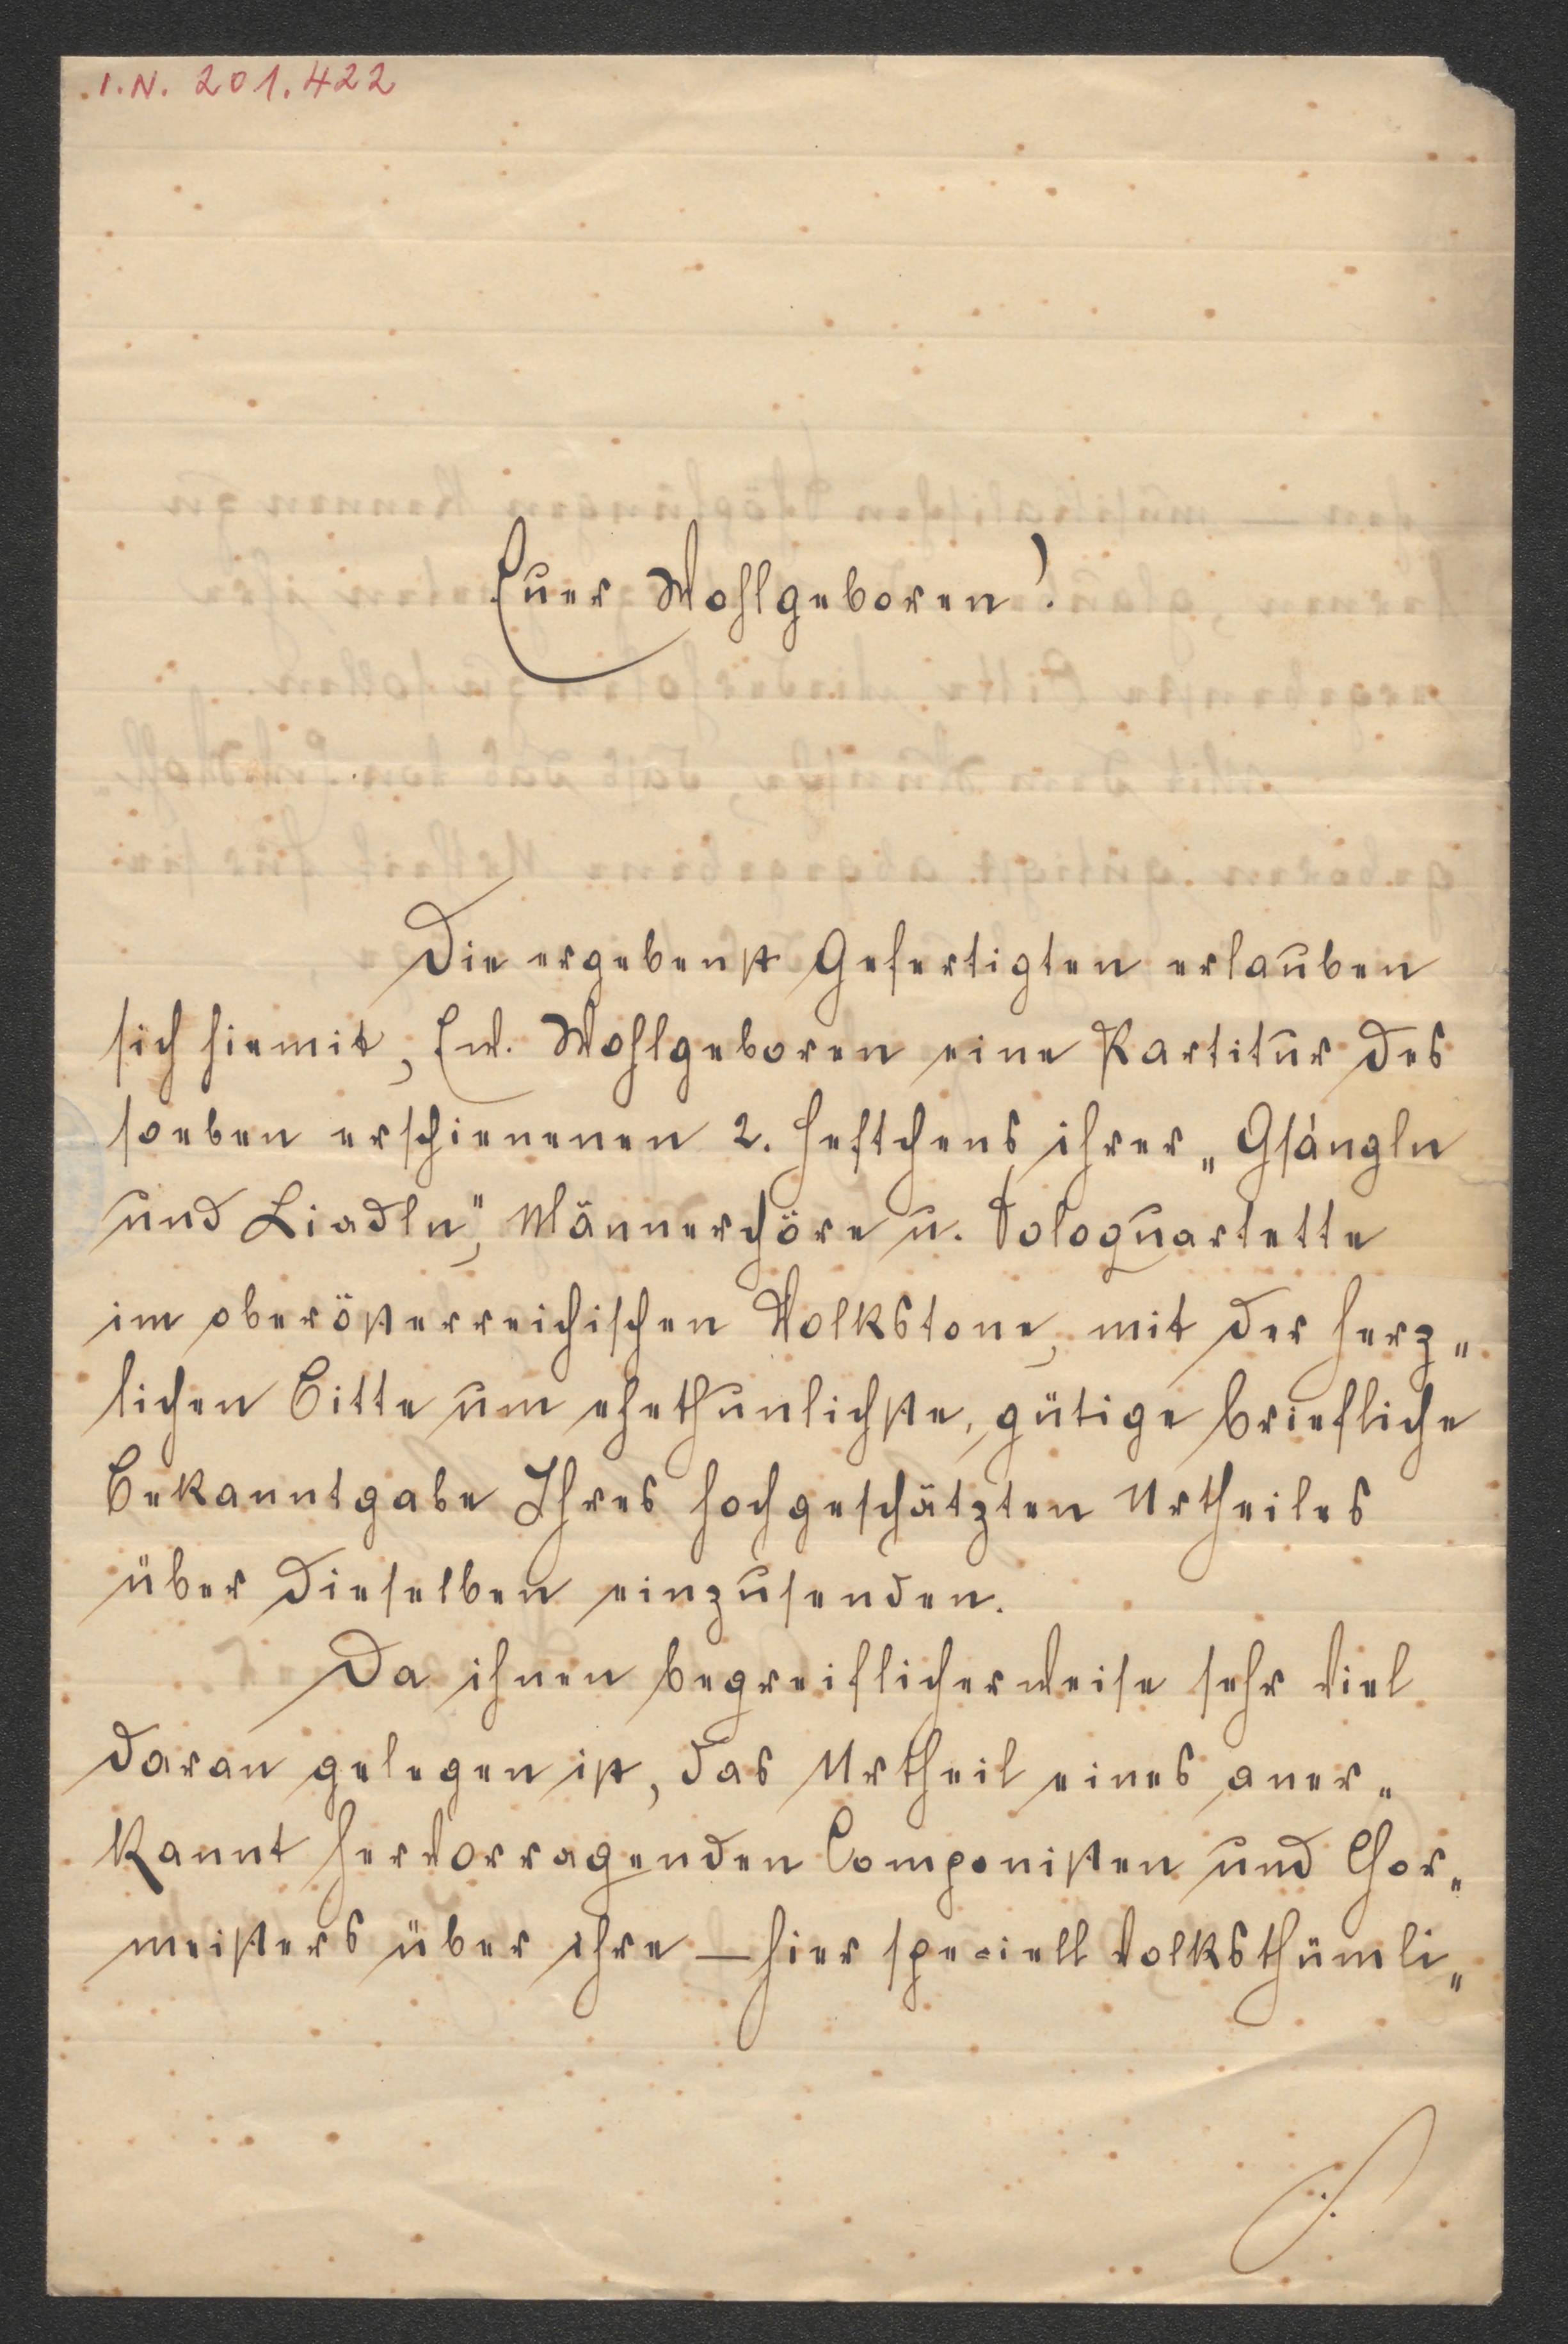 I.N. 201.422
Euer Wohlgeboren!
Die ergebenst Gefertigten erlauben
sich hiemit, Ew. Wohlgeboren eine Partitur des
soeben erschienenen 2. Heftchens ihrer „Gsángln
und Liadln", Männerchöre u. Soloquartette
im oberösterreichischen Volkstone, mit der herz„
lichen Bitte um ehethunlichste, gütige briefliche
Bekanntgabe Ihres hochgeschätzten Urtheiles
über dieselben einzusenden.
Da ihnen begreiflicherweise sehr viel
daran gelegen ist, das Urtheil eines aner„
kannt hervorragenden Componisten und Chor„
meisters über ihre – hier speciell volksthümli„